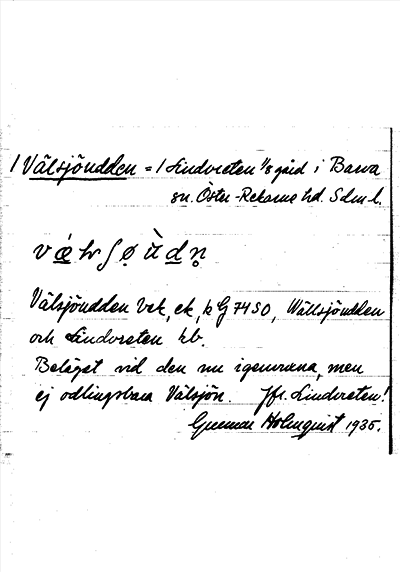 / Välsjöudden = / Lindvreten 1/8 gård i Barva
sn. Öster-Rekarne hd. Sdm l.
Välsjöudden bet, ek, k G 74 SO, Wällsjöudden
och Lindvreten kb.
Beläget vid den nu igenvuxna, men
ej odlingsbara Välsjön. Jfr. Lindvreten!
Gunnar Holmquist 1935.